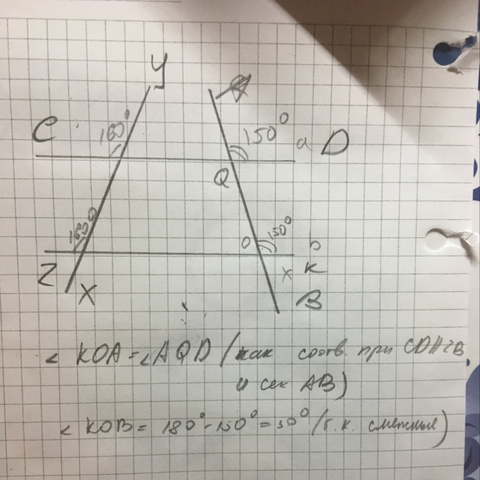 У
A
C
160°
150°
a D
Q
O
150°
b
Z
X
x
K
B
< KOA = < AQD (как соотв. при CD || ZB
и сек AB)
< KOB = 180° - 150° = 30° (т.к. смежные)